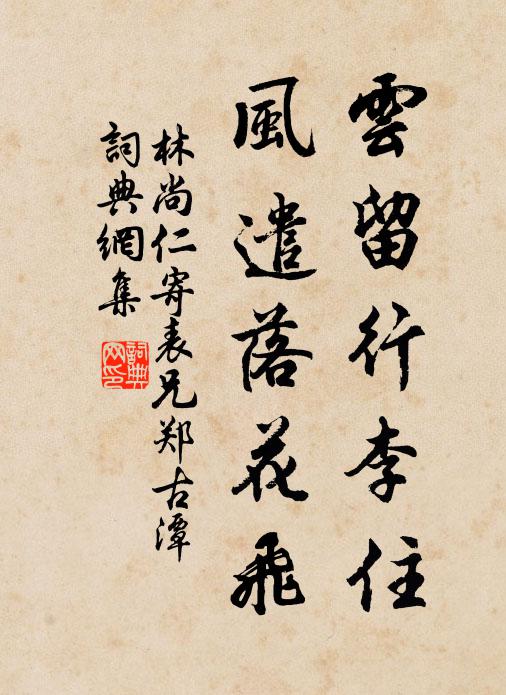 雲留行李住
風遣落花飛
林尚仁寄表兄郑古潭
詞典網集
詞典网印